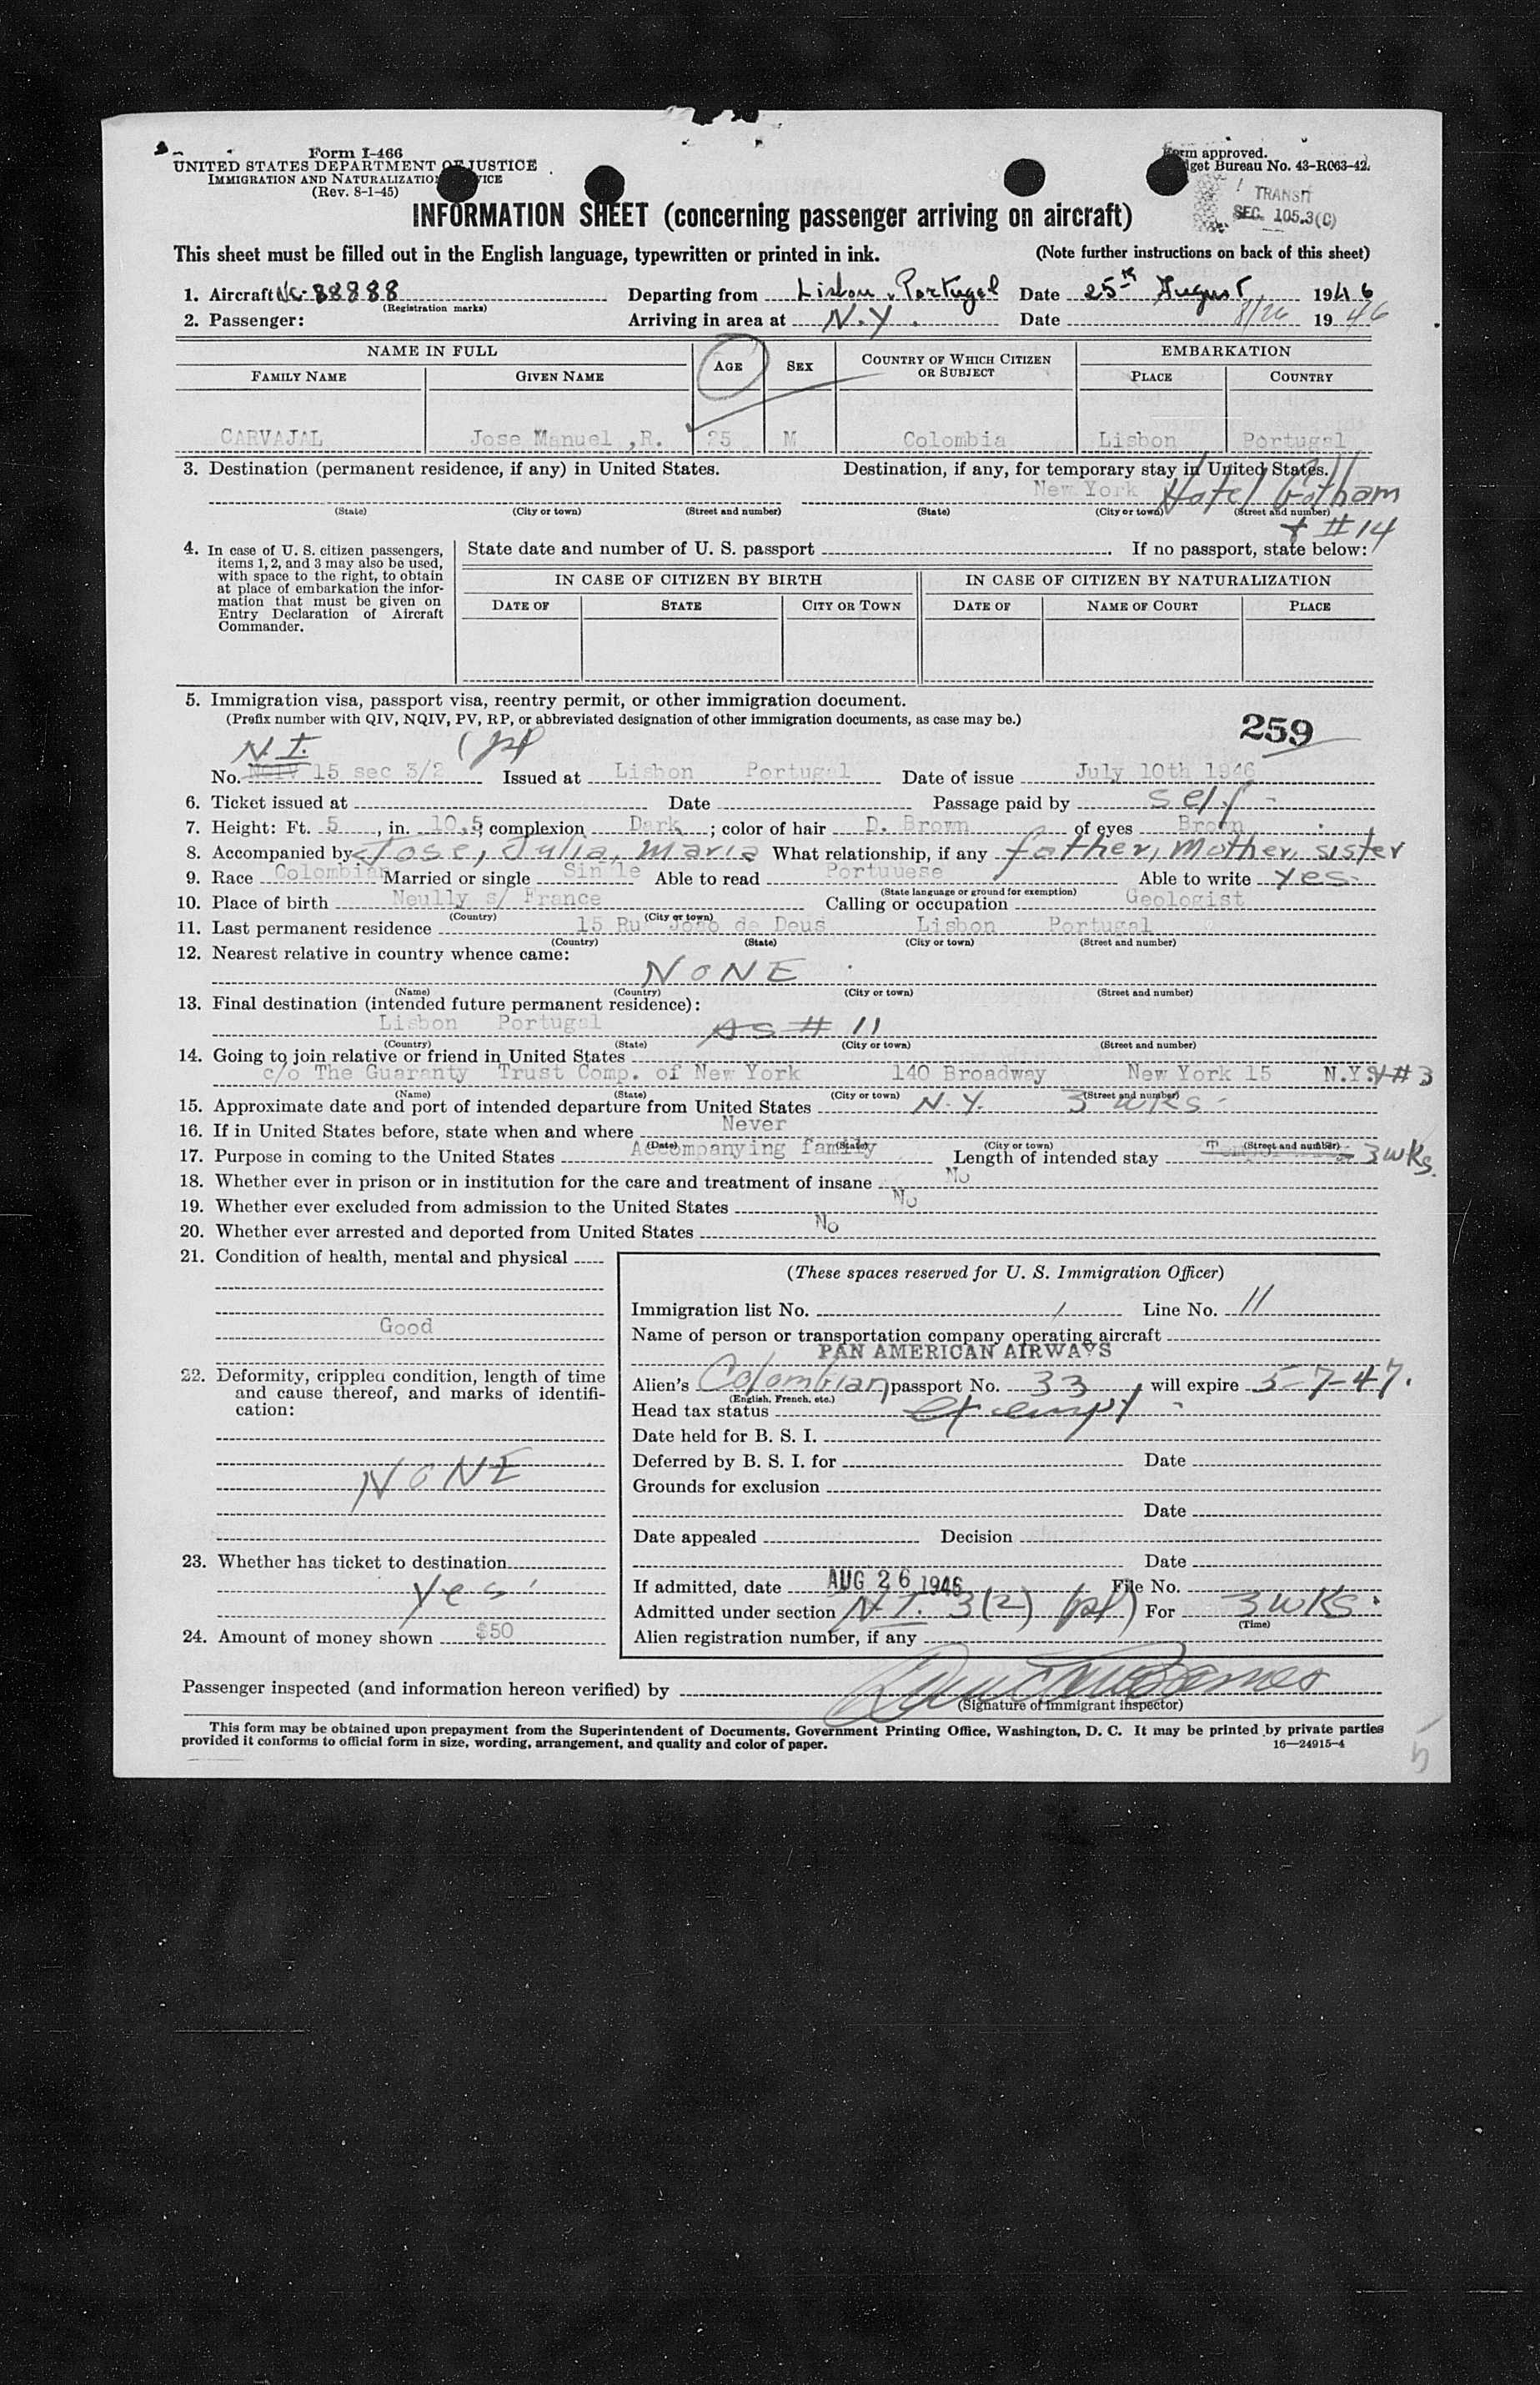 Form I-466
UNITED STATES DEPARTMENT OF JUSTICE
IMMIGRATION AND NATURALIZATION SERVICE
(Rev. 8-1-45)
Form approved.
Budget Bureau No. 43-R063-42.
TRANSIT
SEC. 105.3(C)
INFORMATION SHEET (concerning passenger arriving on aircraft)
This sheet must be filled out in the English language, typewritten or printed in ink. (Note further instructions on back of this sheet)
1. Aircraft Nc-88888 Departing from Lisbon, Portugal Date 25th August 1946
(Registration marks)
2. Passenger: Arriving in area at N.Y. Date 8/26 1946
NAME IN FULL AGE SEX COUNTRY OF WHICH CITIZEN OR SUBJECT EMBARKATION
FAMILY NAME GIVEN NAME PLACE COUNTRY
CARVAJAL Jose Manuel ,R. 25 M Colombia Lisbon Portugal
3. Destination (permanent residence, if any) in United States. Destination, if any, for temporary stay in United States.
New York Hotel Gotham
(State) (City or town) (Street and number) (State) (City or town) (Street and number)
+ #14
4. In case of U. S. citizen passengers, items 1, 2, and 3 may also be used, with space to the right, to obtain at place of embarkation the information that must be given on Entry Declaration of Aircraft Commander.
State date and number of U. S. passport If no passport, state below:
IN CASE OF CITIZEN BY BIRTH IN CASE OF CITIZEN BY NATURALIZATION
DATE OF STATE CITY OR TOWN DATE OF NAME OF COURT PLACE
5. Immigration visa, passport visa, reentry permit, or other immigration document.
(Prefix number with QIV, NQIV, PV, RP, or abbreviated designation of other immigration documents, as case may be.)
259
N.I. (pl
No. 15 sec 3/2 Issued at Lisbon Portugal Date of issue July 10th 1946
6. Ticket issued at Date Passage paid by self -
7. Height: Ft. 5, in. 10.5; complexion Dark; color of hair D. Brown of eyes Brown
8. Accompanied by Jose, Julia, Maria What relationship, if any father, mother, sister
9. Race Colombian Married or single Single Able to read Portuuese Able to write yes-
(State language or ground for exemption)
10. Place of birth Neully s/ France Calling or occupation Geologist
(Country) (City or town)
11. Last permanent residence 15 Ru Joao de Deus Lisbon Portugal
(Country) (State) (City or town) (Street and number)
12. Nearest relative in country whence came:
NONE
(Name) (Country) (City or town) (Street and number)
13. Final destination (intended future permanent residence):
Lisbon Portugal AS # 11
(Country) (State) (City or town) (Street and number)
14. Going to join relative or friend in United States
c/o The Guaranty Trust Comp. of New York 140 Broadway New York 15 N.Y. + #3
(Name) (State) (City or town) (Street and number)
15. Approximate date and port of intended departure from United States N.Y. 3 wks -
16. If in United States before, state when and where Never
(Date) (State) (City or town) (Street and number)
17. Purpose in coming to the United States Accompanying family Length of intended stay 3 wks.
18. Whether ever in prison or in institution for the care and treatment of insane No
19. Whether ever excluded from admission to the United States No
20. Whether ever arrested and deported from United States No
21. Condition of health, mental and physical
Good
22. Deformity, crippled condition, length of time and cause thereof, and marks of identification:
NONE
23. Whether has ticket to destination
Yes
24. Amount of money shown $50
(These spaces reserved for U. S. Immigration Officer)
Immigration list No. / Line No. 11
Name of person or transportation company operating aircraft
PAN AMERICAN AIRWAYS
Alien's Colombian passport No. 33, will expire 5-7-47.
(English, French, etc.)
Head tax status exempt -
Date held for B. S. I.
Deferred by B. S. I. for Date
Grounds for exclusion
Date
Date appealed Decision
Date
If admitted, date AUG 26 1946 File No.
Admitted under section N.I. 3(2) (pl) For 3 wks.
(Time)
Alien registration number, if any
Passenger inspected (and information hereon verified) by
(Signature of immigrant inspector)
This form may be obtained upon prepayment from the Superintendent of Documents, Government Printing Office, Washington, D. C. It may be printed by private parties
provided it conforms to official form in size, wording, arrangement, and quality and color of paper. 16—24915-4